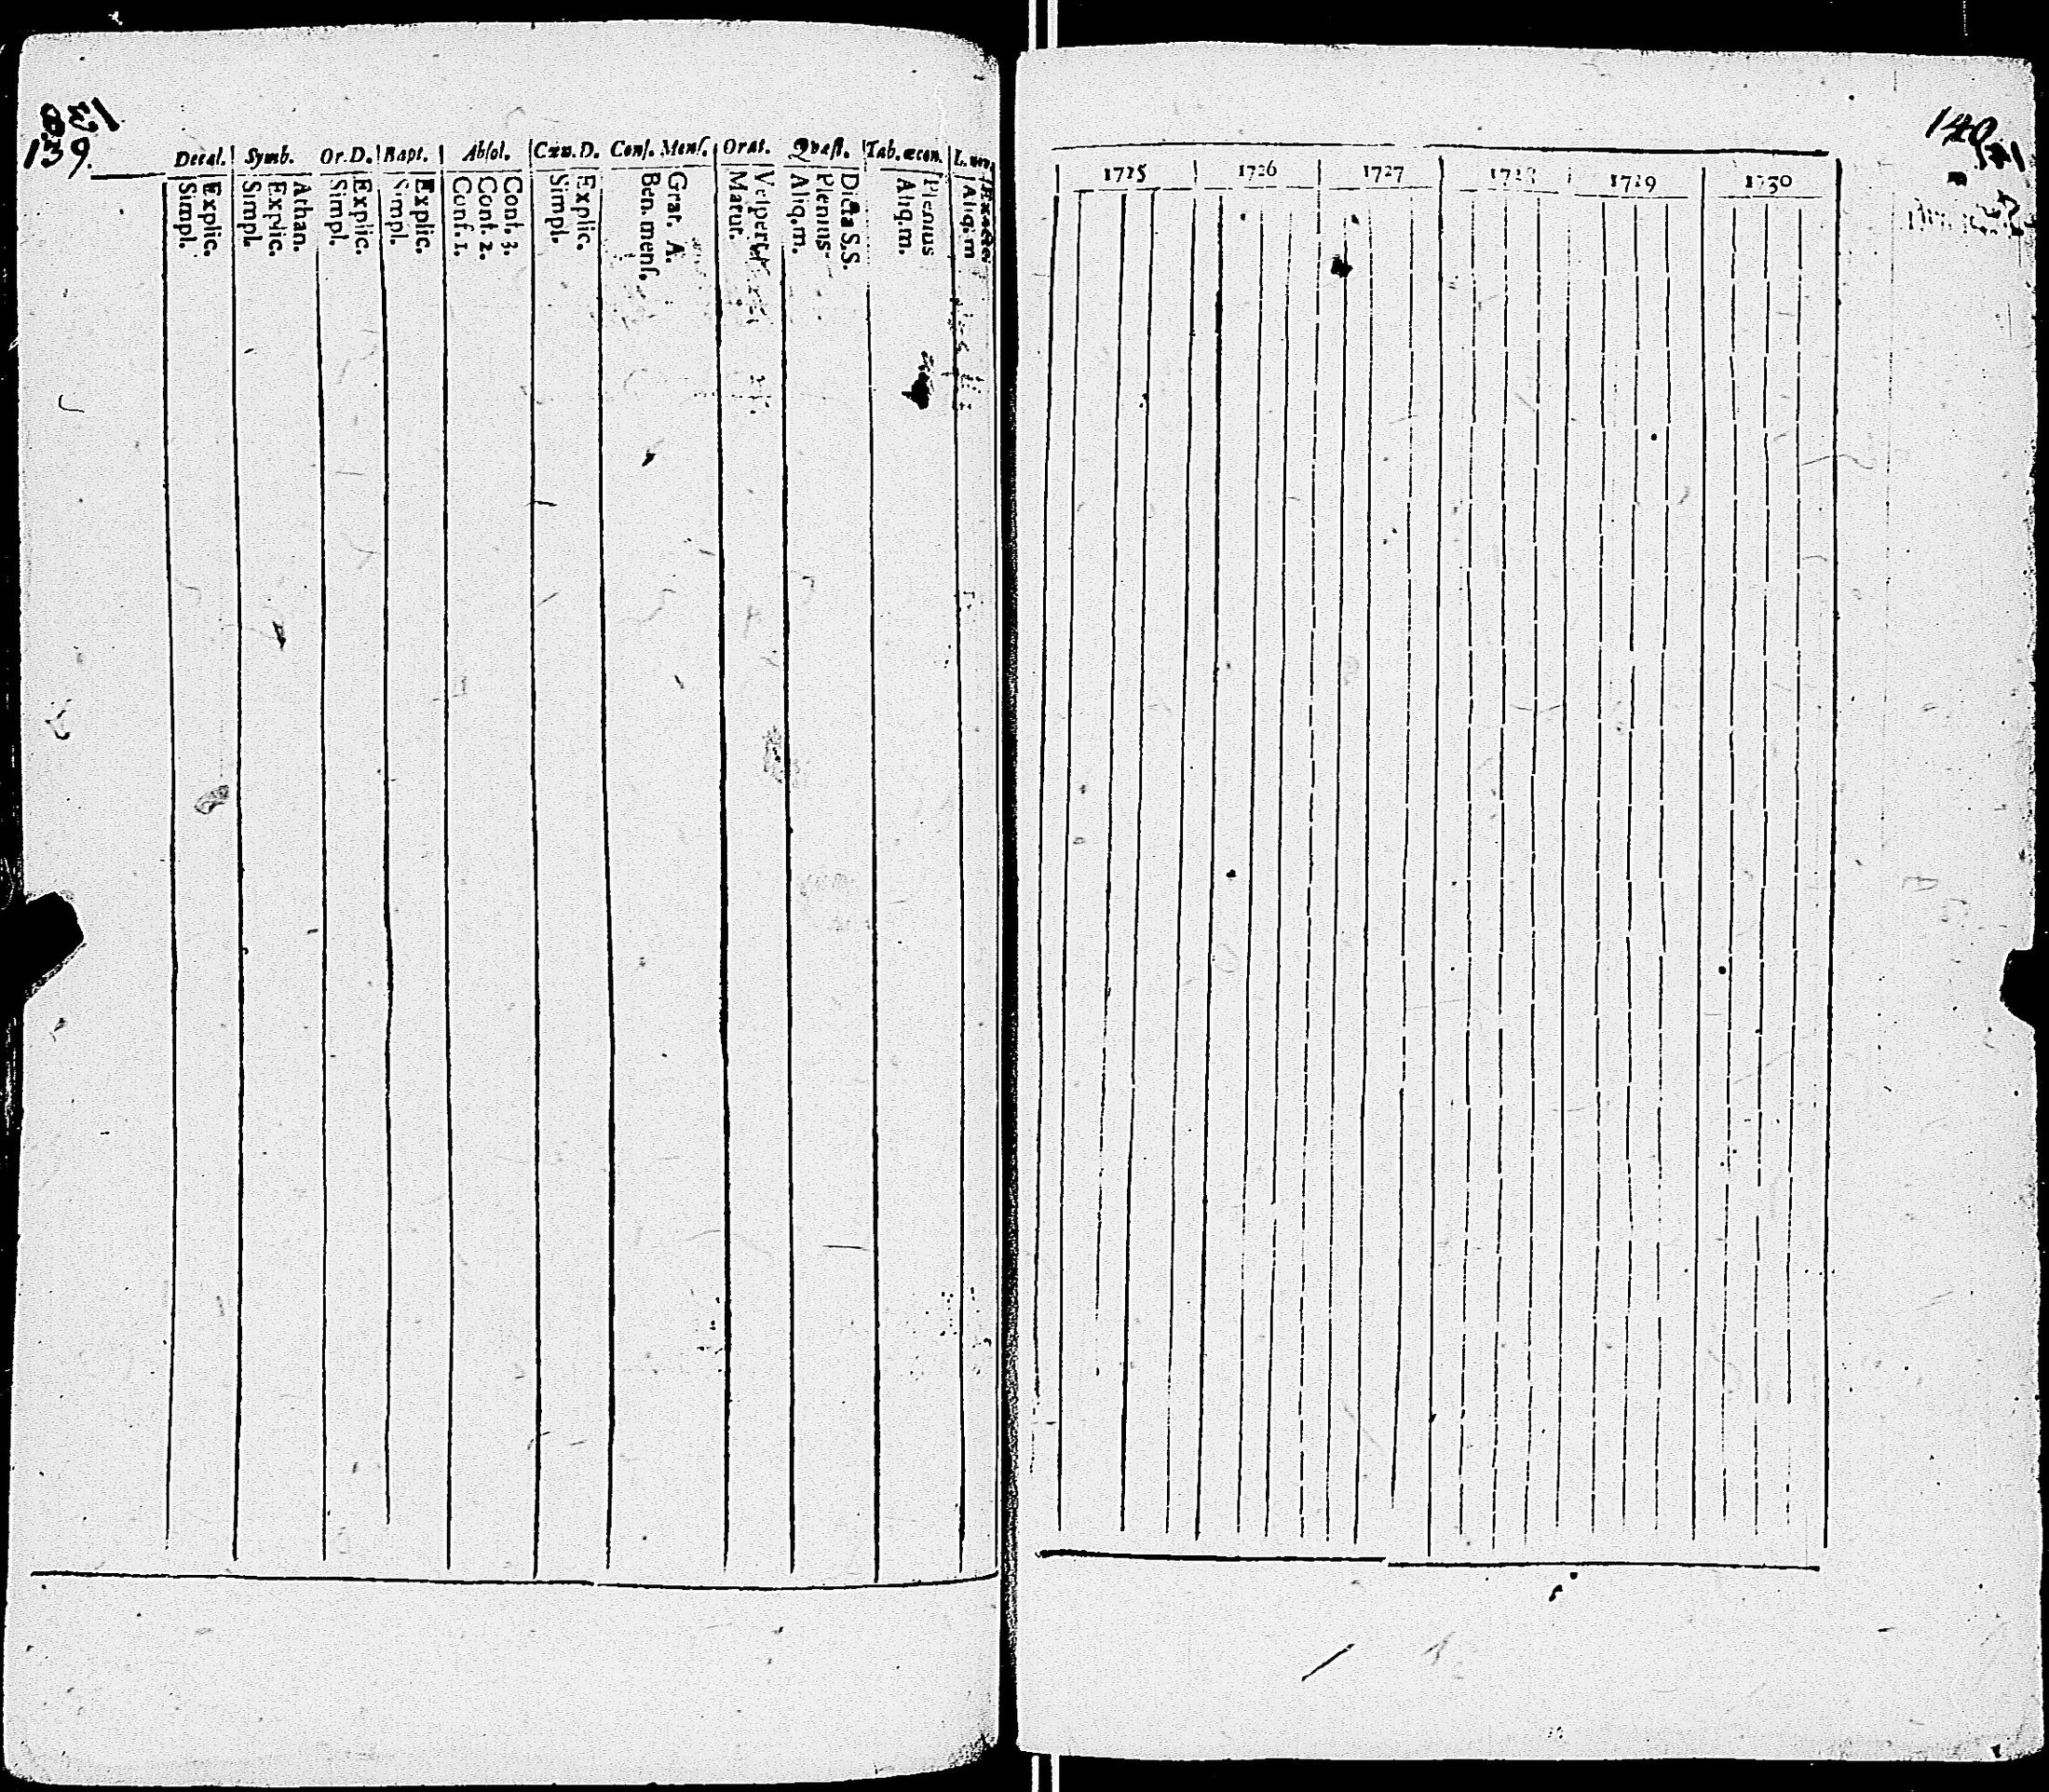 138
139.
Decal. Symb. Or. D. Bapt. Absol. Cæn. D. Conf. Mens. Orat. Qvæst. Tab. œcon.
Simpl.
Explic.
Simpl.
Explic.
Athan.
Simpl.
Explic.
Simpl.
Explic.
Conf. 1.
Conf. 2.
Conf. 3.
Simpl.
Explic.
Ben. menſ.
Grat. A.
Matut.
Veſpert.
Aliq.m.
Plenius
Dicta S.S.
Aliq.m.
Plenius
Aliq.m
Exactei
140
141
1725 1726 1727 1728 1729 1730